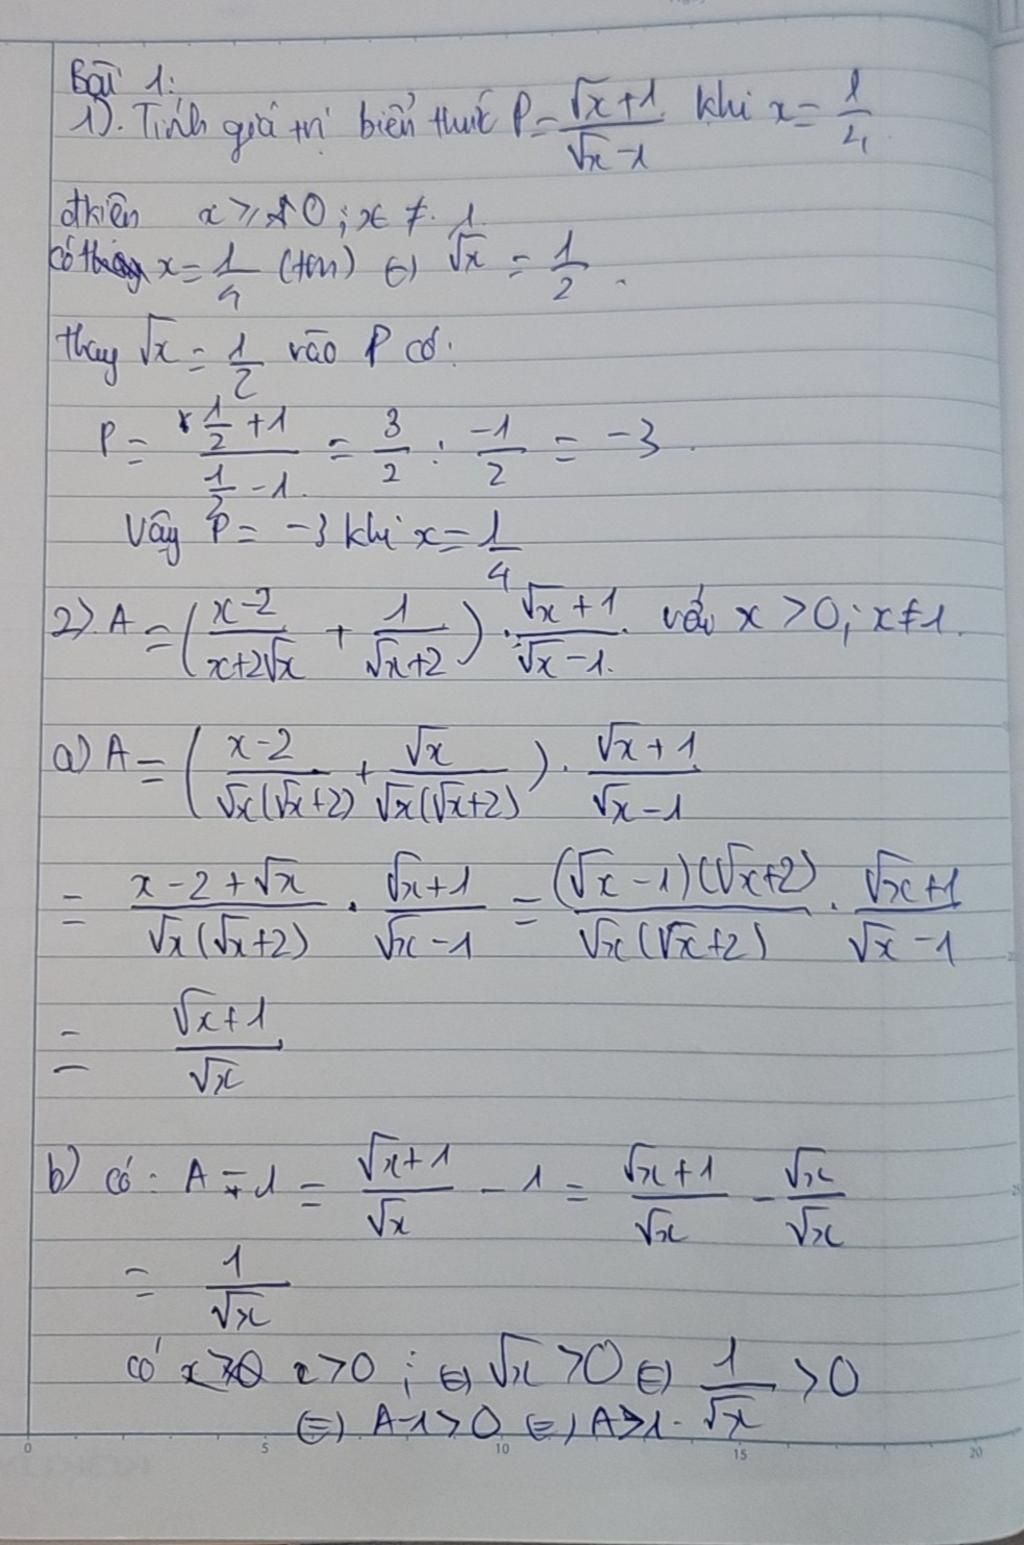 Bài 1:
1). Tính giá trị biểu thức P = (√x + 1)/(√x - 1) khi x = 1/4
đkiện x ≥ 0 ; x ≠ 1
có x = 1/4 (tm) ⇔ √x = 1/2.
thay √x = 1/2 vào P có:
P = (1/2 + 1)/(1/2 - 1) = 3/2 : -1/2 = -3.
Vậy P = -3 khi x = 1/4
2). A = ((x-2)/(x+2√x) + 1/(√x+2)) . (√x+1)/(√x-1) với x > 0; x ≠ 1.
a) A = ((x-2)/(√x(√x+2)) + √x/(√x(√x+2))) . (√x+1)/(√x-1)
= (x-2+√x)/(√x(√x+2)) . (√x+1)/(√x-1) = ((√x-1)(√x+2))/(√x(√x+2)) . (√x+1)/(√x-1)
= (√x+1)/√x
b) có: A - 1 = (√x+1)/√x - 1 = (√x+1)/√x - √x/√x
= 1/√x
có x > 0 ; ⇔ √x > 0 ⇔ 1/√x > 0
⇔ A-1 > 0 ⇔ A > 1.
0 5 10 15 20